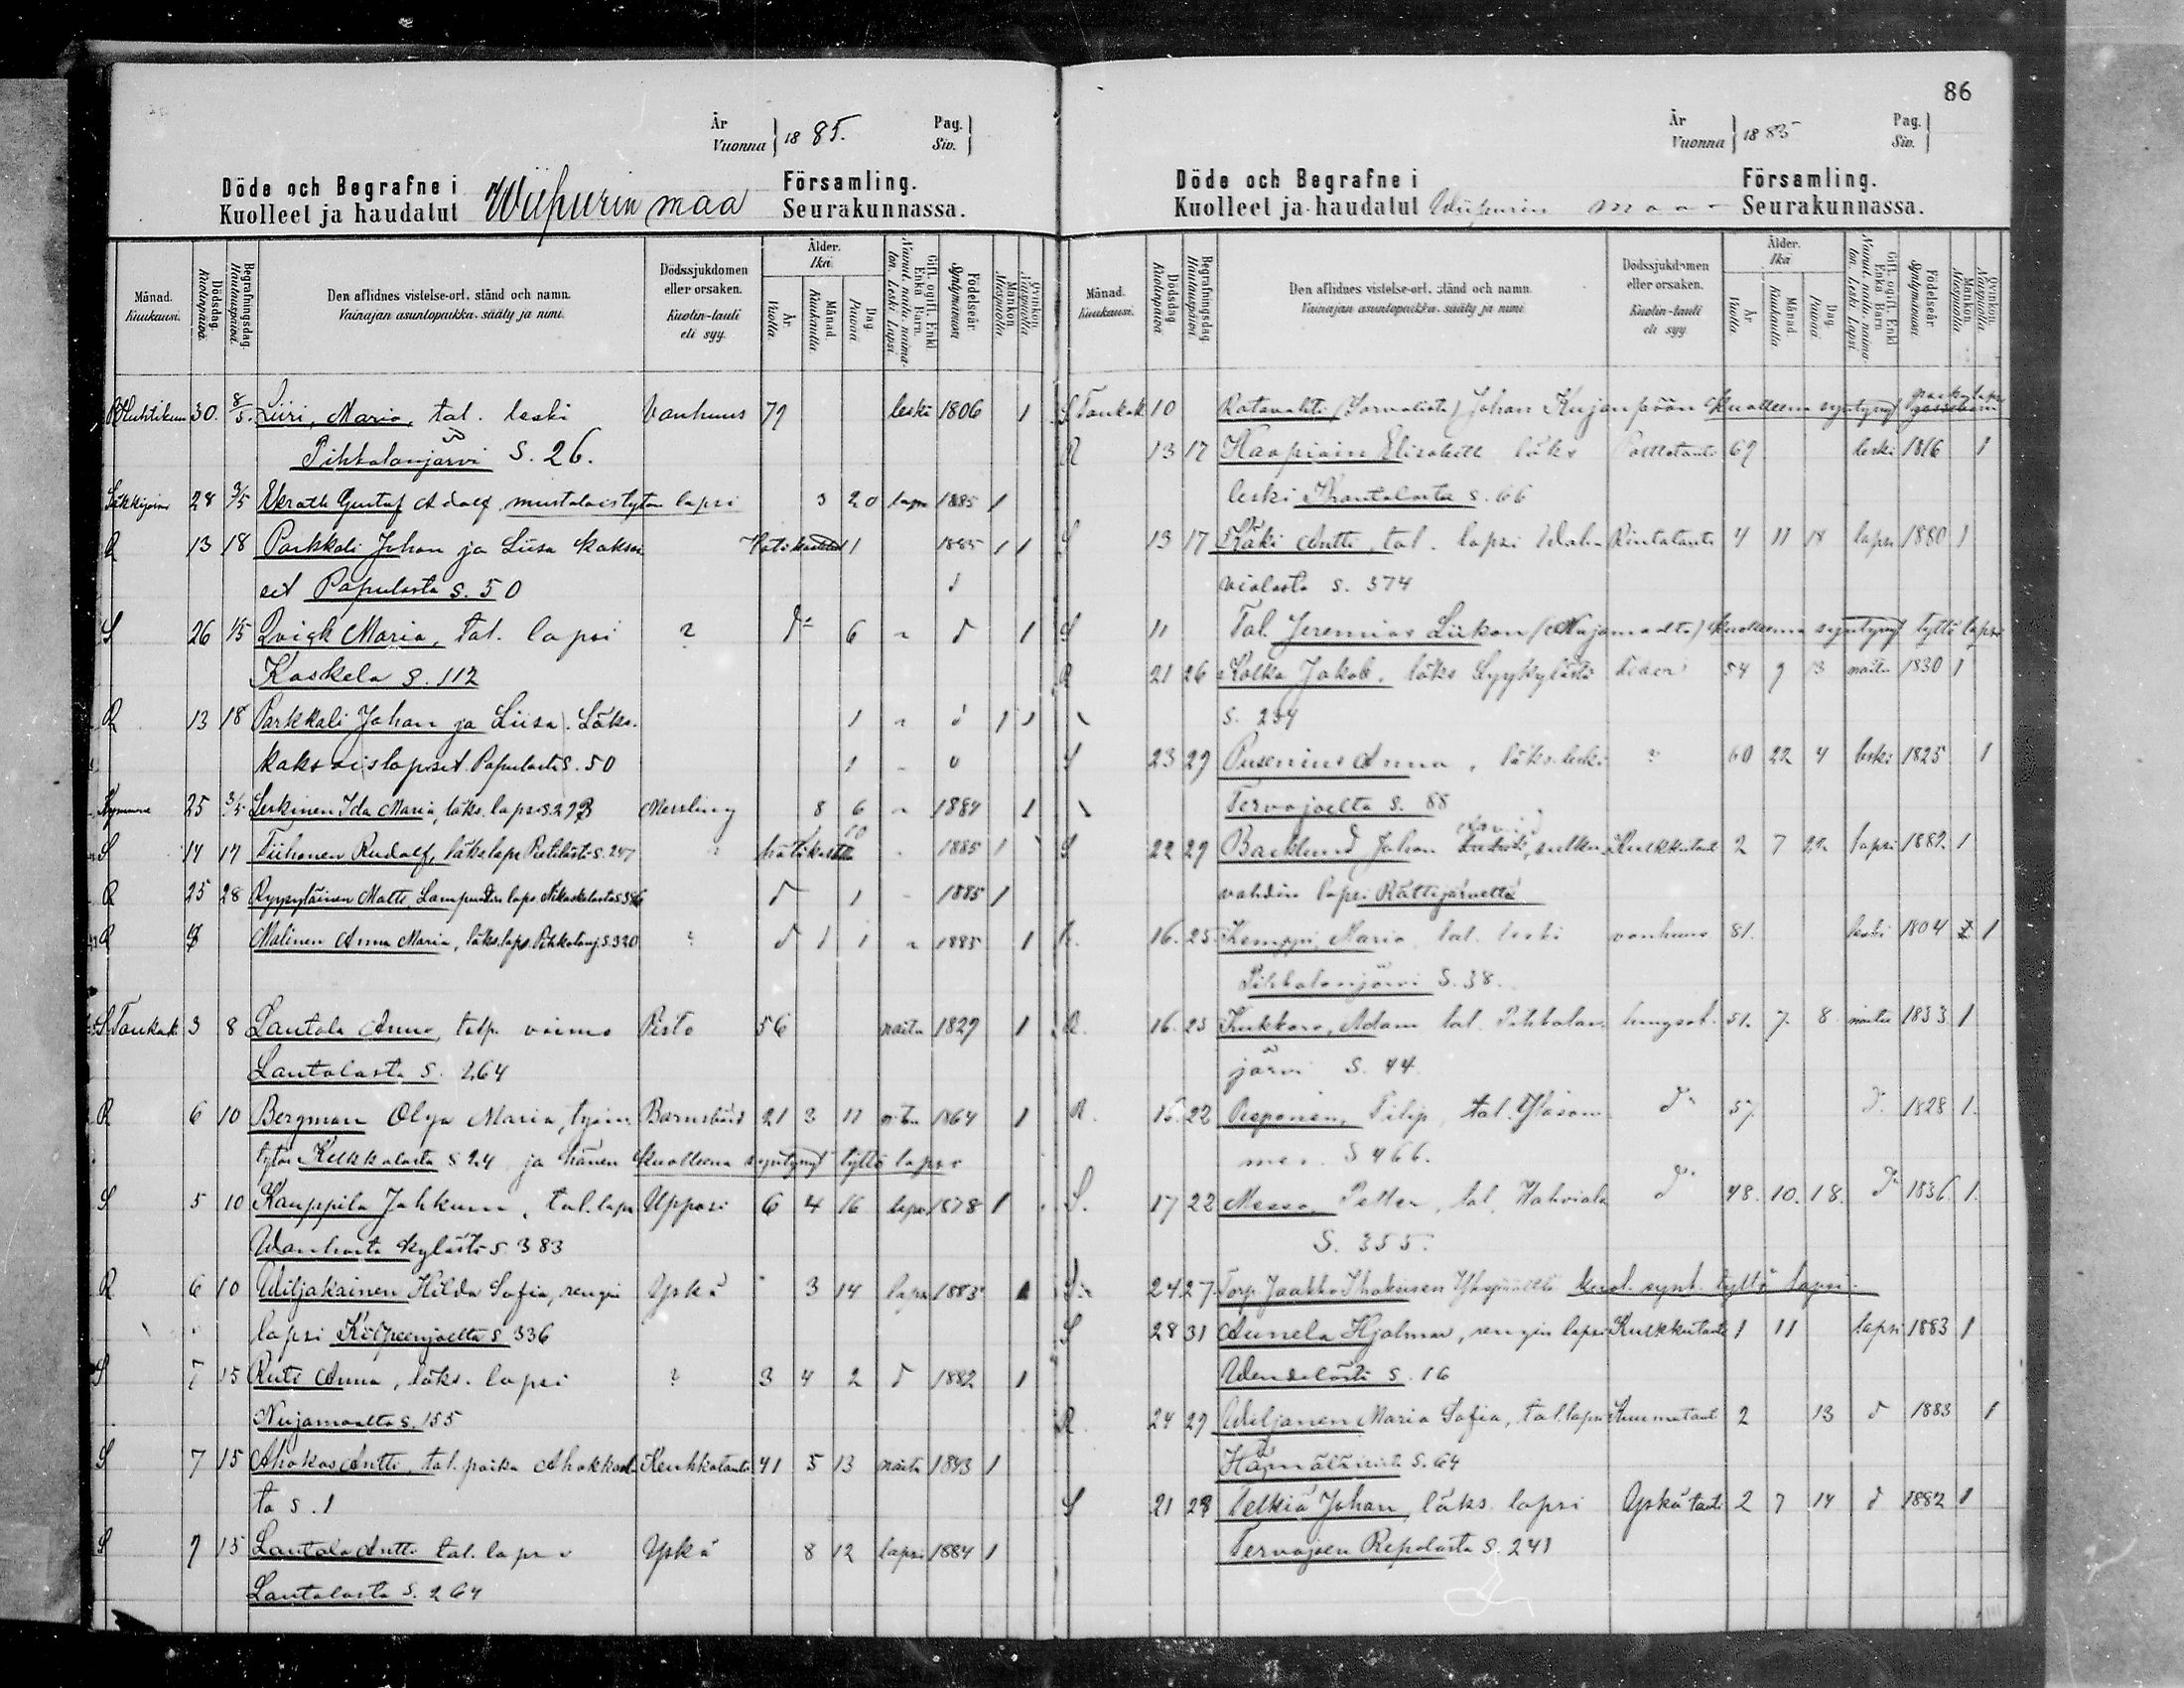 86
År
Vuonna 1885.
Pag.
Siv.
Döde och Begrafne i
Kuolleet ja haudatut
Wiipurin maa
Församling.
Seurakunnassa.
Månad.
Kuukausi.
Dödsdag.
Kuolinpäivä.
Begrafningsdag.
Hautauspäivä.
Den aflidnes vistelse-ort, stånd och namn.
Vainajan asuntopaikka, sääty ja nimi.
Dödssjukdomen
eller orsaken.
Kuolin-tauti
eli syy.
Ålder.
Ikä.
År.
Vuotta.
Månad.
Kuukautta.
Dag.
Päivää.
Gift, ogift, Enkl.
Enka, Barn.
Nainut, naitu, naima-
ton, Leski, Lapsi.
Födelseår.
Syntymävuosi.
Mankön.
Miespuolia.
Qvinkön.
Naispuolia.
Huhtikuu 30. 8/5. Liiri, Maria, tal. leski Vanhuus 79 leski 1806 1
Pihkalanjärvi S. 26.
Säkkijärvi 28 3/5 Ekroth Gustaf Adolf mustalaistytön lapsi 3 20 lapsi 1885 1
R 13 18 Parkkali Johan ja Liisa kaksoi Hätäkastetut 1 1885 1 1
set Papulasta s. 50
S 26 1/5 Qvick Maria, tal. lapsi ? 6 1
Kaskela s. 112
R 13 18 Parkkali Johan ja Liisa. Läks. 1 1 1
kaksoislapset Papulasta S. 50 1
25 3/5 Leskinen Ida Maria, läks. lapsi S. 293 Messling 8 6 1884 1
S 14 17 Tiihonen Rudolf, läks. lapsi S. 247 hätäkaste 1885 1
R 25 28 Ryyppyläinen Matti, lapsi 1 1885 1
R Malinen Anna Maria, läks. laps. Pihkalanj. S. 320 ? 1 1885 1
S Toukok. 3 8 Lautala Anna, talp. vaimo Pisto 56 naitu 1829 1
Lautalasta S. 264
R 6 10 Bergman Olga Maria, Barnsbörd 21 3 11 1864 1
tytär Kelkkalasta S 24 ja hänen kuolleena syntynyt tyttö lapsi
S 5 10 Kauppila Juhkum, tal. lapsi Upposi 6 4 16 lapsi 1878 1
Wanhasta kylästä S. 383
R 6 10 Wiljakainen Hilda Sofia, rengin Yskä 3 14 lapsi 1885 1
lapsi Kilpeenjoelta S 336
S 7 15 Ruti Anna, läks. lapsi ? 3 4 2 1882 1
Nuijamaalta S. 155
S 7 15 Ahokas Antti, tal. poika Ahokkaal- Keuhkotauti 41 5 13 naitu 1843 1
ta s. 1
S 7 15 Lautala Antti tal. lapsi Yskä 8 12 lapsi 1884 1
Lautalasta S. 264
År
Vuonna 1885
Pag.
Siv.
Döde och Begrafne i
Kuolleet ja haudatut
Wiipurin maa-
Församling.
Seurakunnassa.
Månad.
Kuukausi.
Dödsdag
Kuolinpäivä
Begrafningsdag
Hautauspäivä
Den aflidnes vistelse-ort, stånd och namn.
Vainajan asuntopaikka, sääty ja nimi
Dödssjukdomen
eller orsaken.
Kuolin-tauti
eli syy
Ålder.
Ikä
År
Vuotta
Månad
Kuukautta
Dag.
Päivää
Gift, ogift, Enkl
Enka Barn
Nainut, naitu, naima-
ton, Leski, Lapsi.
Födelseår.
Syntymävuosi
Mankön.
Miespuolia
Qvinkön.
Naispuolia
S Toukok 10 Ratavahti Johan Kujanpään kuolleena syntynyt poika lapsi
R 13 17 Kaopiain Elisabeth läks Polttotauti 69 leski 1816 1
leski s. 66
S 13 17 Käki Antti, tal. lapsi Wah- Rintatauti 4 11 18 lapsi 1880 1
vialasta S. 374
S 11 Tal. Jeremias Liikan (Nujamaalta) kuolleena syntynyt tyttö lapsi
R 21 26 Kolka Jakob, läks Lyykylästä 54 9 13 naitu 1830 1
S. 234
S 23 29 Pusenius Anna, läks. leski ? 60 22 4 leski 1825 1
Tervajoelta S. 88
S 22 29 Backlund Johan David, sulku Kurkkutauti 2 7 22 lapsi 1882 1
vahdin lapsi Rättijärveltä
R. 16. 25. Kemppi, Maria tal. leski vanhuus 81. leski 1804 1
Pihkalanjärvi S. 38.
R. 16. 25 Kukkaro, Adam tal. Pihkalan- lungsot. 51. 7. 8 naitu 1833 1
järvi S. 44.
R. 16. 22 Reponen, Filip, tal. 57. 1828 1.
S 466.
S. 17 22 Messo, Petter, tal. Wahviala 48. 10. 18. 1836. 1.
S. 355.
24 27. Torp. Jaakko kuol. synt. tyttö lapsi.
S 28 31 Aunela Hjalmar, rengin lapsi Kurkkutauti 1 11 lapsi 1883 1
S. 16
R 24 29 Wiljanen Maria Sofia, tal. lapsi Kuumetauti 2 13 1883 1
S. 64
S 21 28 Telkiä Johan, läks. lapsi Yskä tauti 2 7 14 1882 1
Tervajoen Repolasta S. 241